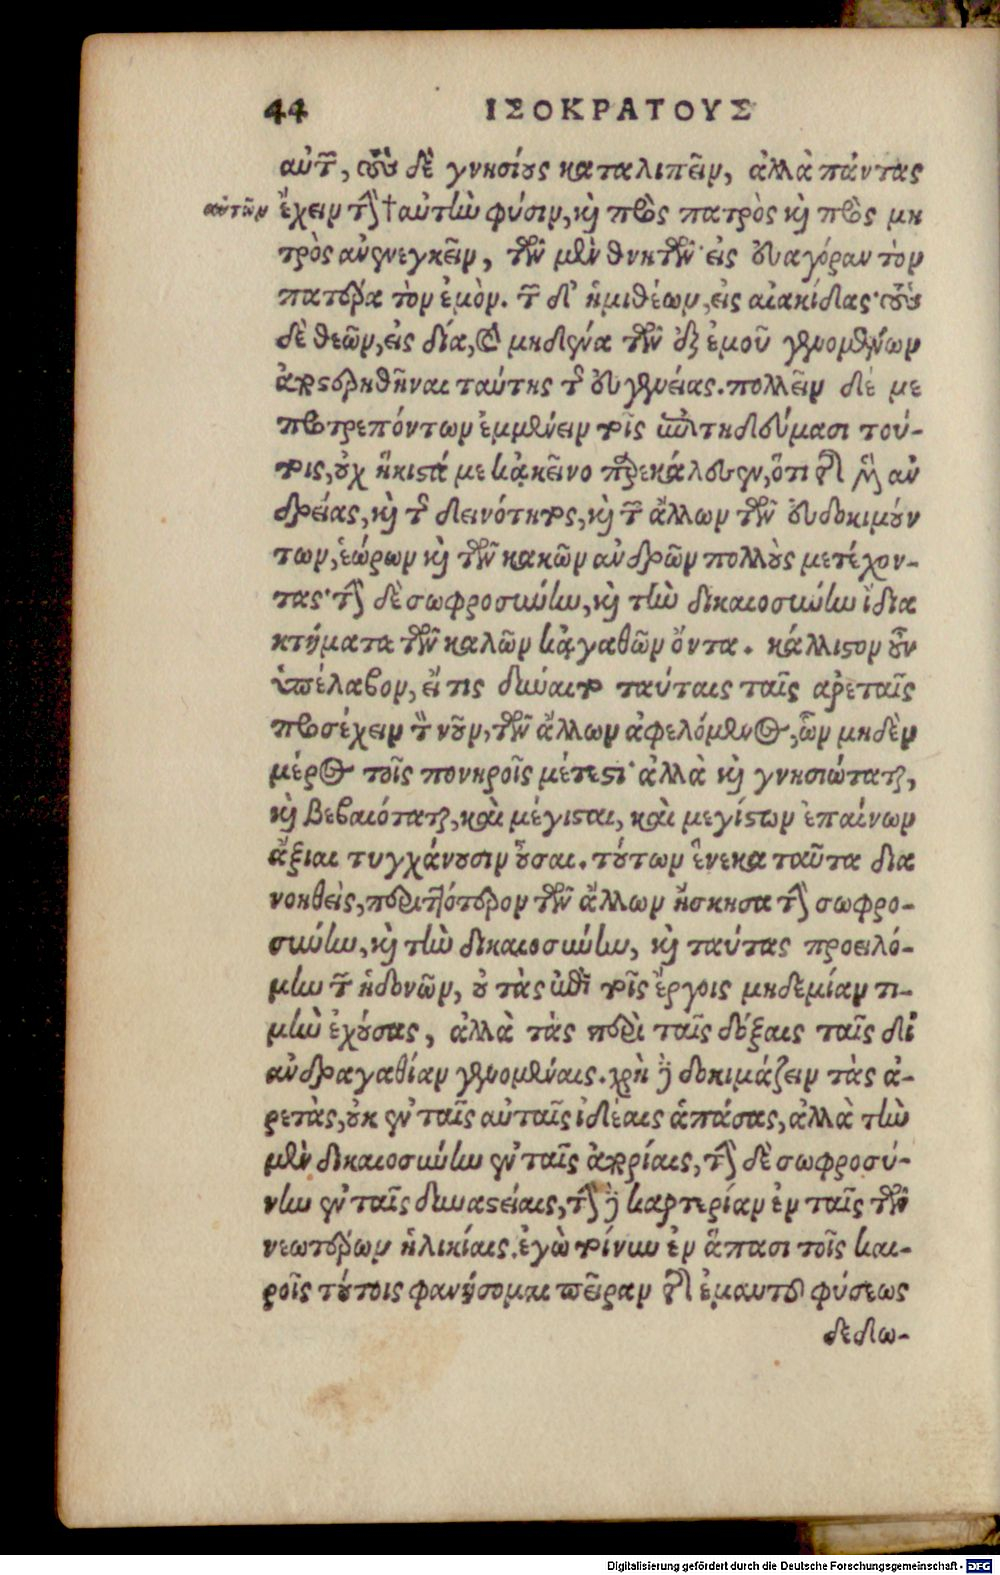 44 ΙΣΟΚΡΑΤΟΥΣ
αὐτῶν, τοὺς δὲ γνησίους καταλιπεῖν, ἀλλὰ πάντας
αὑτῶν
ἔχειν τὴν † αὐτὴν φύσιν, καὶ πρὸς πατρὸς καὶ πρὸς μη
τρὸς ἀνενεγκεῖν, τῶν μὲν θνητῶν· εἰς εὐαγόραν τὸν
πατέρα τὸν ἐμὸν. τῶν δ' ἡμιθέων, εἰς αἰακίδας· τοὺς
δὲ θεῶν, εἰς δία, καὶ μηδένα τῶν ἐξ ἐμοῦ γενομένων
ἀποστερηθῆναι ταύτης τῆς εὐγενείας. πολλῶν δέ με
προτρεπόντων ἐμμένειν τοῖς ἐπιτηδεύμασι τού-
τοις, οὐχ ἥκιστά με κἀκεῖνο παρεκάλεσεν, ὅτι τῆς μὲν ἀν
δρείας, καὶ τῆς δεινότητος, καὶ τῶν ἄλλων τῶν εὐδοκιμούν
των, ἑώρων καὶ τῶν κακῶν ἀνδρῶν πολλοὺς μετέχον-
τας· τὴν δὲ σωφροσύνην, καὶ τὴν δικαιοσύνην ἴδια
κτήματα τῶν καλῶν κἀγαθῶν ὄντα. κάλλιστον οὖν
ὑπέλαβον, εἴ τις δύναιτο ταύταις ταῖς ἀρεταῖς
προσέχειν τὸν νοῦν, τῶν ἄλλων ἀφελόμενος, ὧν μηδὲν
μέρος τοῖς πονηροῖς μέτεστι· ἀλλὰ καὶ γνησιώταται,
καὶ βεβαιόταται, καὶ μέγισται, καὶ μεγίστων ἐπαίνων
ἄξιαι τυγχάνουσιν οὖσαι. τούτων ἕνεκα ταῦτα δια
νοηθεὶς, περιττότερον τῶν ἄλλων ἤσκησα τὴν σωφρο-
σύνην, καὶ τὴν δικαιοσύνην, καὶ ταύτας προειλό-
μην τῶν ἡδονῶν, οὐ τὰς ἐπὶ τοῖς ἔργοις μηδεμίαν τι-
μὴν ἐχούσας, ἀλλὰ τὰς περὶ ταῖς δόξαις ταῖς δι'
ἀνδραγαθίαν γενομέναις. χρὴ δὲ δοκιμάζειν τὰς ἀ-
ρετὰς, οὐκ ἐν ταῖς αὐταῖς ἰδέαις ἁπάσας, ἀλλὰ τὴν
μὲν δικαιοσύνην ἐν ταῖς ἀπορίαις, τὴν δὲ σωφροσύ-
νην ἐν ταῖς δυναστείαις, τὴν δὲ καρτερίαν ἐν ταῖς τῶν
νεωτέρων ἡλικίαις. ἐγὼ τοίνυν ἐν ἅπασι τοῖς και-
ροῖς τούτοις φανήσομαι πεῖραν τῆς ἐμαυτοῦ φύσεως
δεδω-
Digitalisierung gefördert durch die Deutsche Forschungsgemeinschaft - DFG